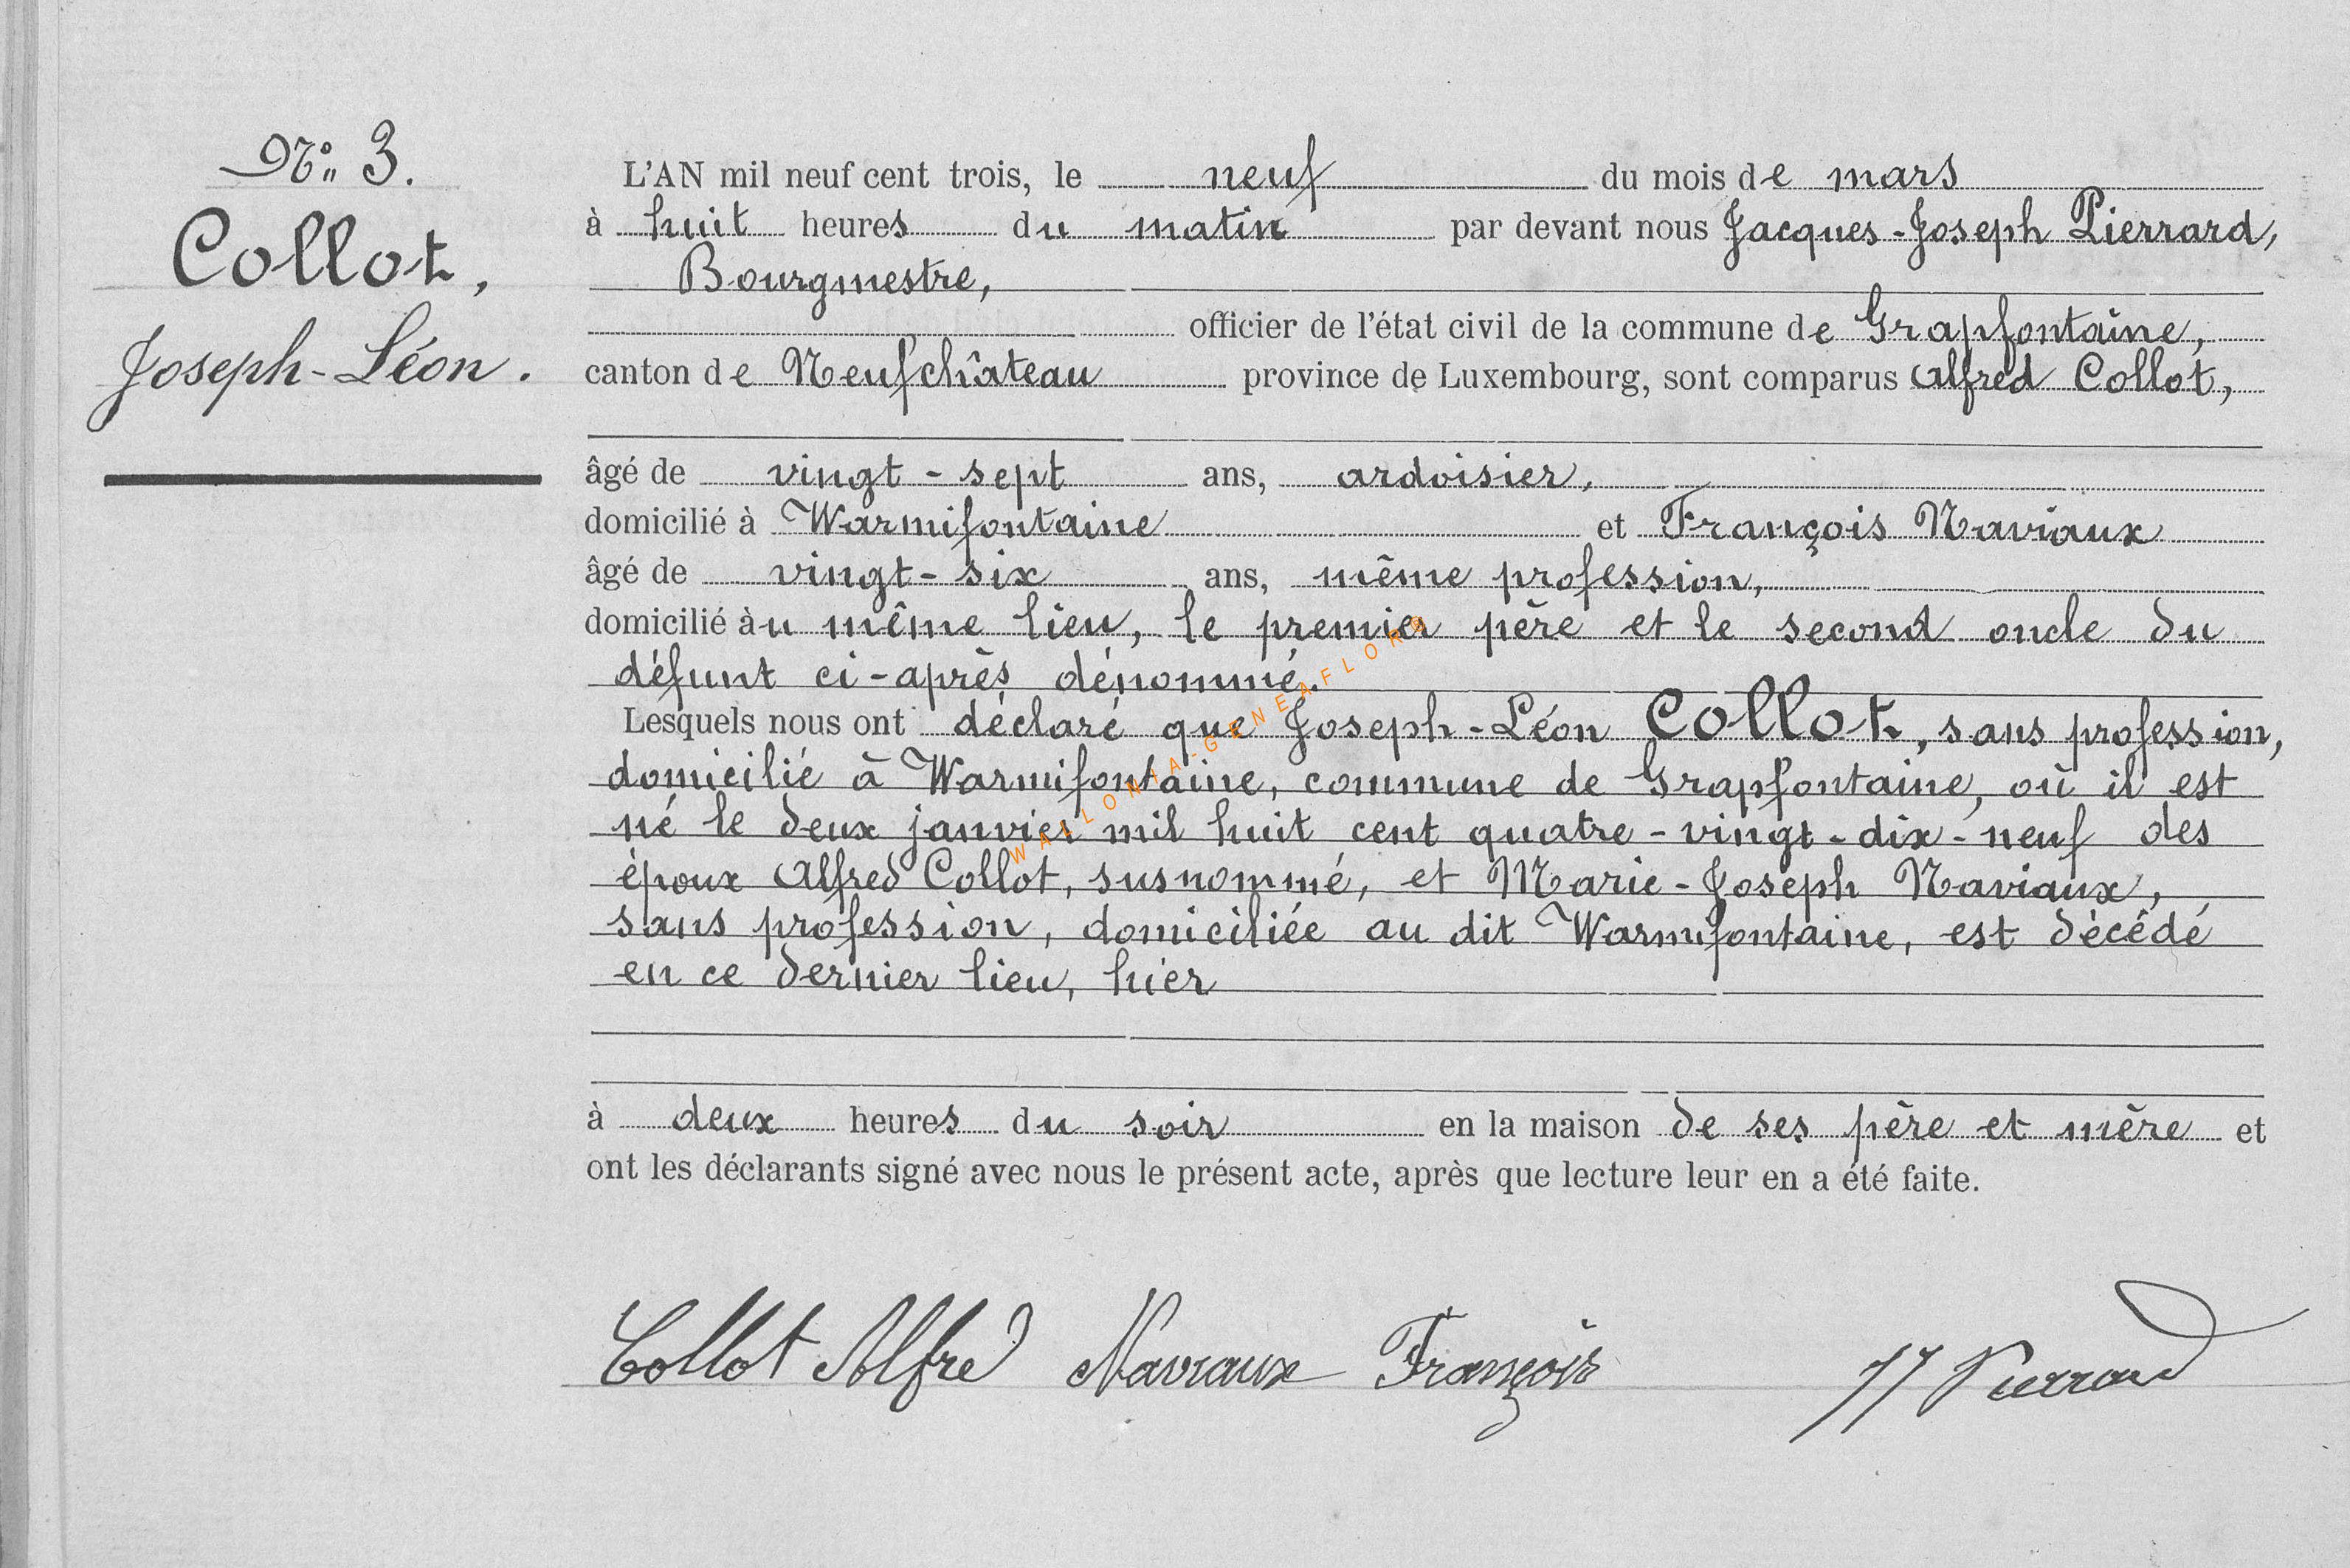 N° 3.
Collot,
Joseph-Léon.
L'AN mil neuf cent trois, le neuf du mois de mars
à huit heures du matin par devant nous Jacques-Joseph Pierrard,
Bourgmestre,
officier de l'état civil de la commune de Grapfontaine,
canton de Neufchâteau province de Luxembourg, sont comparus Alfred Collot,
âgé de vingt-sept ans, ardoisier,
domicilié à Warmifontaine et François Naviaux
âgé de vingt-six ans, même profession,
domicilié àu même lieu, le premier père et le second oncle du
défunt ci-après dénommé.
Lesquels nous ont déclaré que Joseph-Léon Collot, sans profession,
domicilié à Warmifontaine, commune de Grapfontaine, où il est
né le deux janvier mil huit cent quatre-vingt-dix-neuf des
époux Alfred Collot, susnommé, et Marie-Joseph Naviaux,
sans profession, domiciliée au dit Warmifontaine, est décédé
en ce dernier lieu, hier
à deux heures du soir en la maison de ses père et mère et
ont les déclarants signé avec nous le présent acte, après que lecture leur en a été faite.
Collot Alfred Naviaux François JJ Pierrard
WALLONIA-GENEAFLORE